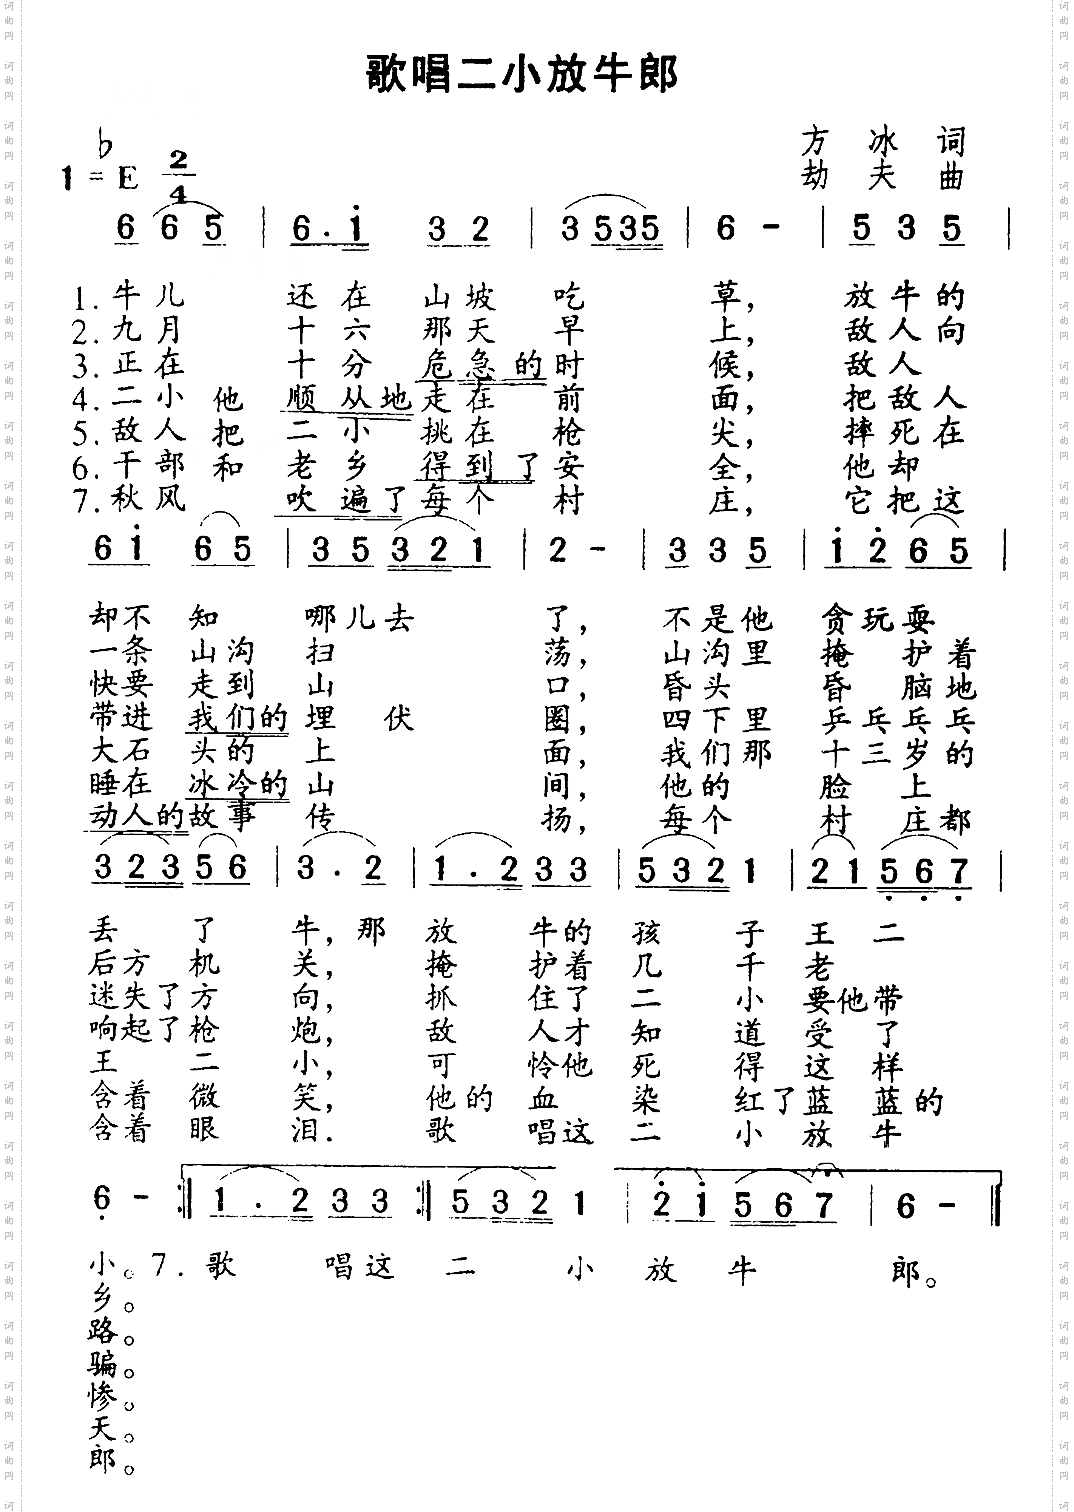 歌唱二小放牛郎
方 冰 词
1 = ♭E 2/4
劫 夫 曲
6 6 5 | 6 . i 3 2 | 3 5 3 5 | 6 - | 5 3 5 |
1. 牛儿 还在 山坡 吃 草， 放牛的
2. 九月 十六 那天 早 上， 敌人向
3. 正在 十分 危急的时 候， 敌人
4. 二小他 顺从地走在 前 面， 把敌人
5. 敌人把 二小 挑在 枪 尖， 摔死在
6. 干部和 老乡 得到了安 全， 他却
7. 秋风 吹遍了每个 村 庄， 它把这
6 i 6 5 | 3 5 3 2 1 | 2 - | 3 3 5 | i 2 6 5 |
却不 知 哪儿去 了， 不是他 贪玩耍
一条 山沟 扫 荡， 山沟里 掩 护着
快要 走到 山 口， 昏头 昏 脑地
带进 我们的 埋 伏 圈， 四下里 乒乓乒乓
大石 头的 上 面， 我们那 十三岁的
睡在 冰冷的 山 间， 他的 脸 上
动人的故事 传 扬， 每个 村 庄都
3 2 3 5 6 | 3 . 2 | 1 . 2 3 3 | 5 3 2 1 | 2 1 5 6 7 |
丢 了 牛，那 放 牛的 孩 子 王 二
后方 机 关， 掩 护着 几 千 老
迷失了方 向， 抓 住了 二 小 要他带
响起了枪 炮， 敌 人才 知 道 受 了
王 二 小， 可 怜他 死 得 这 样
含着 微 笑， 他的 血 染 红了蓝 蓝的
含着 眼 泪. 歌 唱这 二 小 放 牛
6 - :‖ 1 . 2 3 3 :‖ 5 3 2 1 | 2 i 5 6 7 | 6 - ‖
小。7. 歌 唱这 二 小 放 牛 郎。
乡。
路。
骗。
惨。
天。
郎。
词曲网